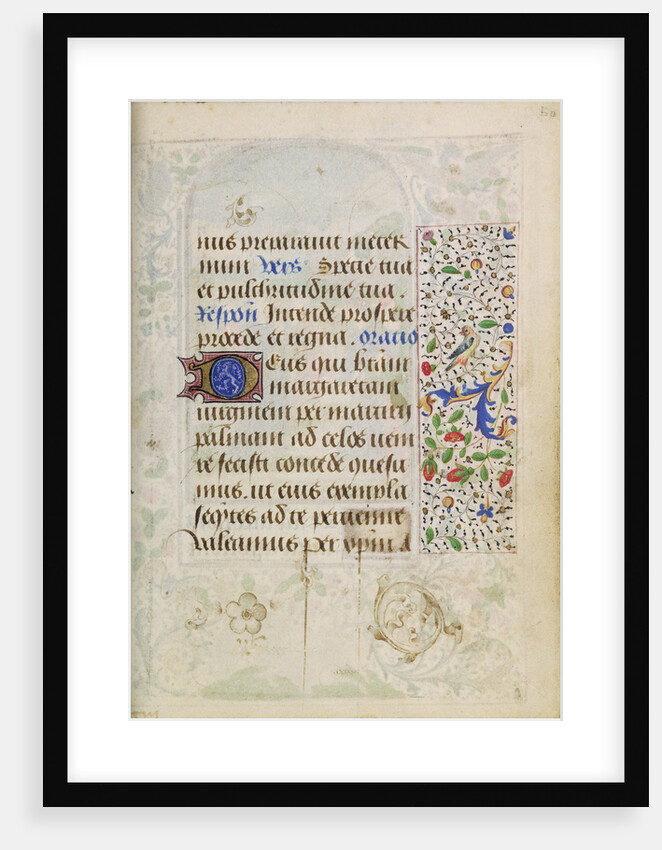 60
nus preparavit in eter
num Vers Specie tua
et pulchritudine tua .
Respon Intende prospere
procede et regna . oratio
Deus qui beatam
margaretam
virginem per martirii
palmam ad celos veni
re fecisti concede quesu
mus . ut eius exempla
seqntes ad te pertinere
valeamus per xpm